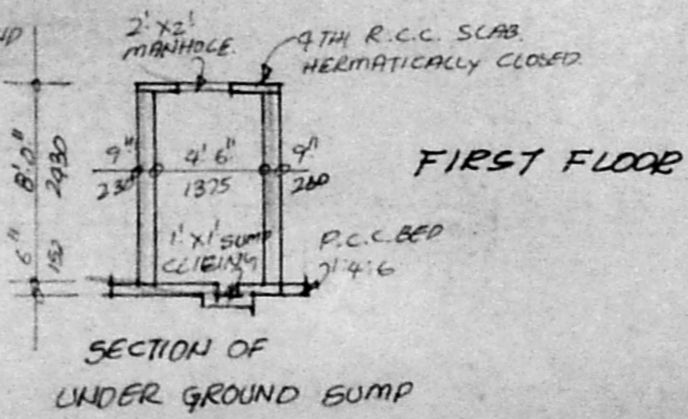 2' X 2'
MANHOLE.
4 TH R.C.C. SLAB.
HERMATICALLY CLOSED.
8'.0"
2430
9"
230
4' 6"
1375
9"
230
FIRST FLOOR
6"
150
1' X 1' SUMP
P.C.C. BED
1:4:6
SECTION OF
UNDER GROUND SUMP